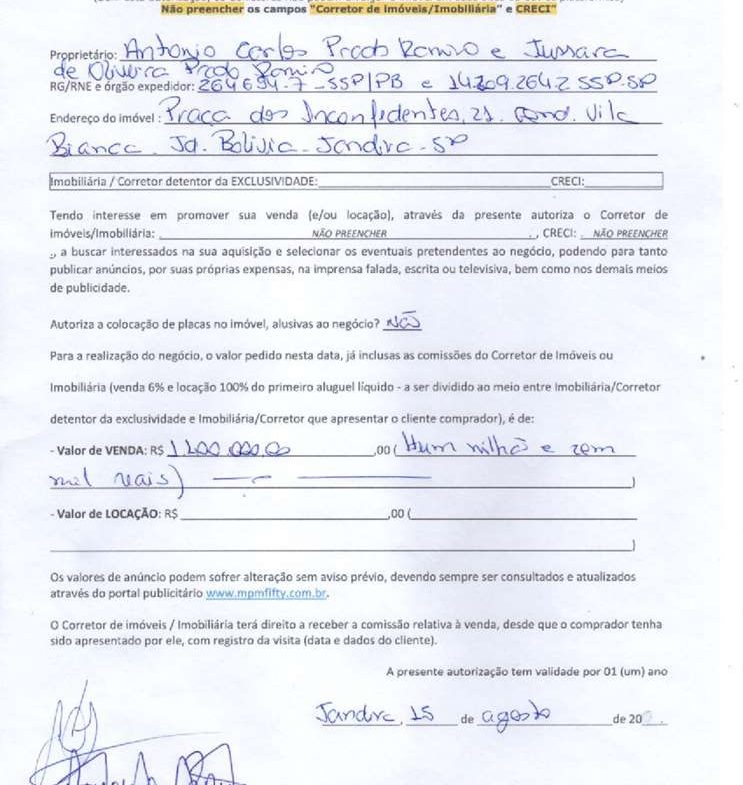 Não preencher os campos "Corretor de Imóveis/Imobiliária" e CRECI"
Proprietário: Antonio Carlos Prado Romio e Jussara
de Oliveira Prado Romiro
RG/RNE e órgão expedidor: 264694-7-SSP/PB e 14.209.264-2 SSP-SP
Endereço do imóvel: Praça dos Inconfidentes, 21. Cond. Vila
Bianca. Jd. Bolivia - Jandira - SP
Imobiliária / Corretor detentor da EXCLUSIVIDADE: CRECI:
Tendo interesse em promover sua venda (e/ou locação), através da presente autoriza o Corretor de
imóveis/Imobiliária: NÃO PREENCHER , CRECI: NÃO PREENCHER
, a buscar interessados na sua aquisição e selecionar os eventuais pretendentes ao negócio, podendo para tanto
publicar anúncios, por suas próprias expensas, na imprensa falada, escrita ou televisiva, bem como nos demais meios
de publicidade.
Autoriza a colocação de placas no imóvel, alusivas ao negócio? NÃO
Para a realização do negócio, o valor pedido nesta data, já inclusas as comissões do Corretor de Imóveis ou
Imobiliária (venda 6% e locação 100% do primeiro aluguel líquido - a ser dividido ao meio entre Imobiliária/Corretor
detentor da exclusividade e Imobiliária/Corretor que apresentar o cliente comprador), é de:
- Valor de VENDA: R$ 1.100.000,00 ,00 ( Hum milhão e cem
mil reais) )
- Valor de LOCAÇÃO: R$ ,00 (
)
Os valores de anúncio podem sofrer alteração sem aviso prévio, devendo sempre ser consultados e atualizados
através do portal publicitário www.mpmfifty.com.br.
O Corretor de imóveis / Imobiliária terá direito a receber a comissão relativa à venda, desde que o comprador tenha
sido apresentado por ele, com registro da visita (data e dados do cliente).
A presente autorização tem validade por 01 (um) ano
Jandira, 15 de agosto de 20